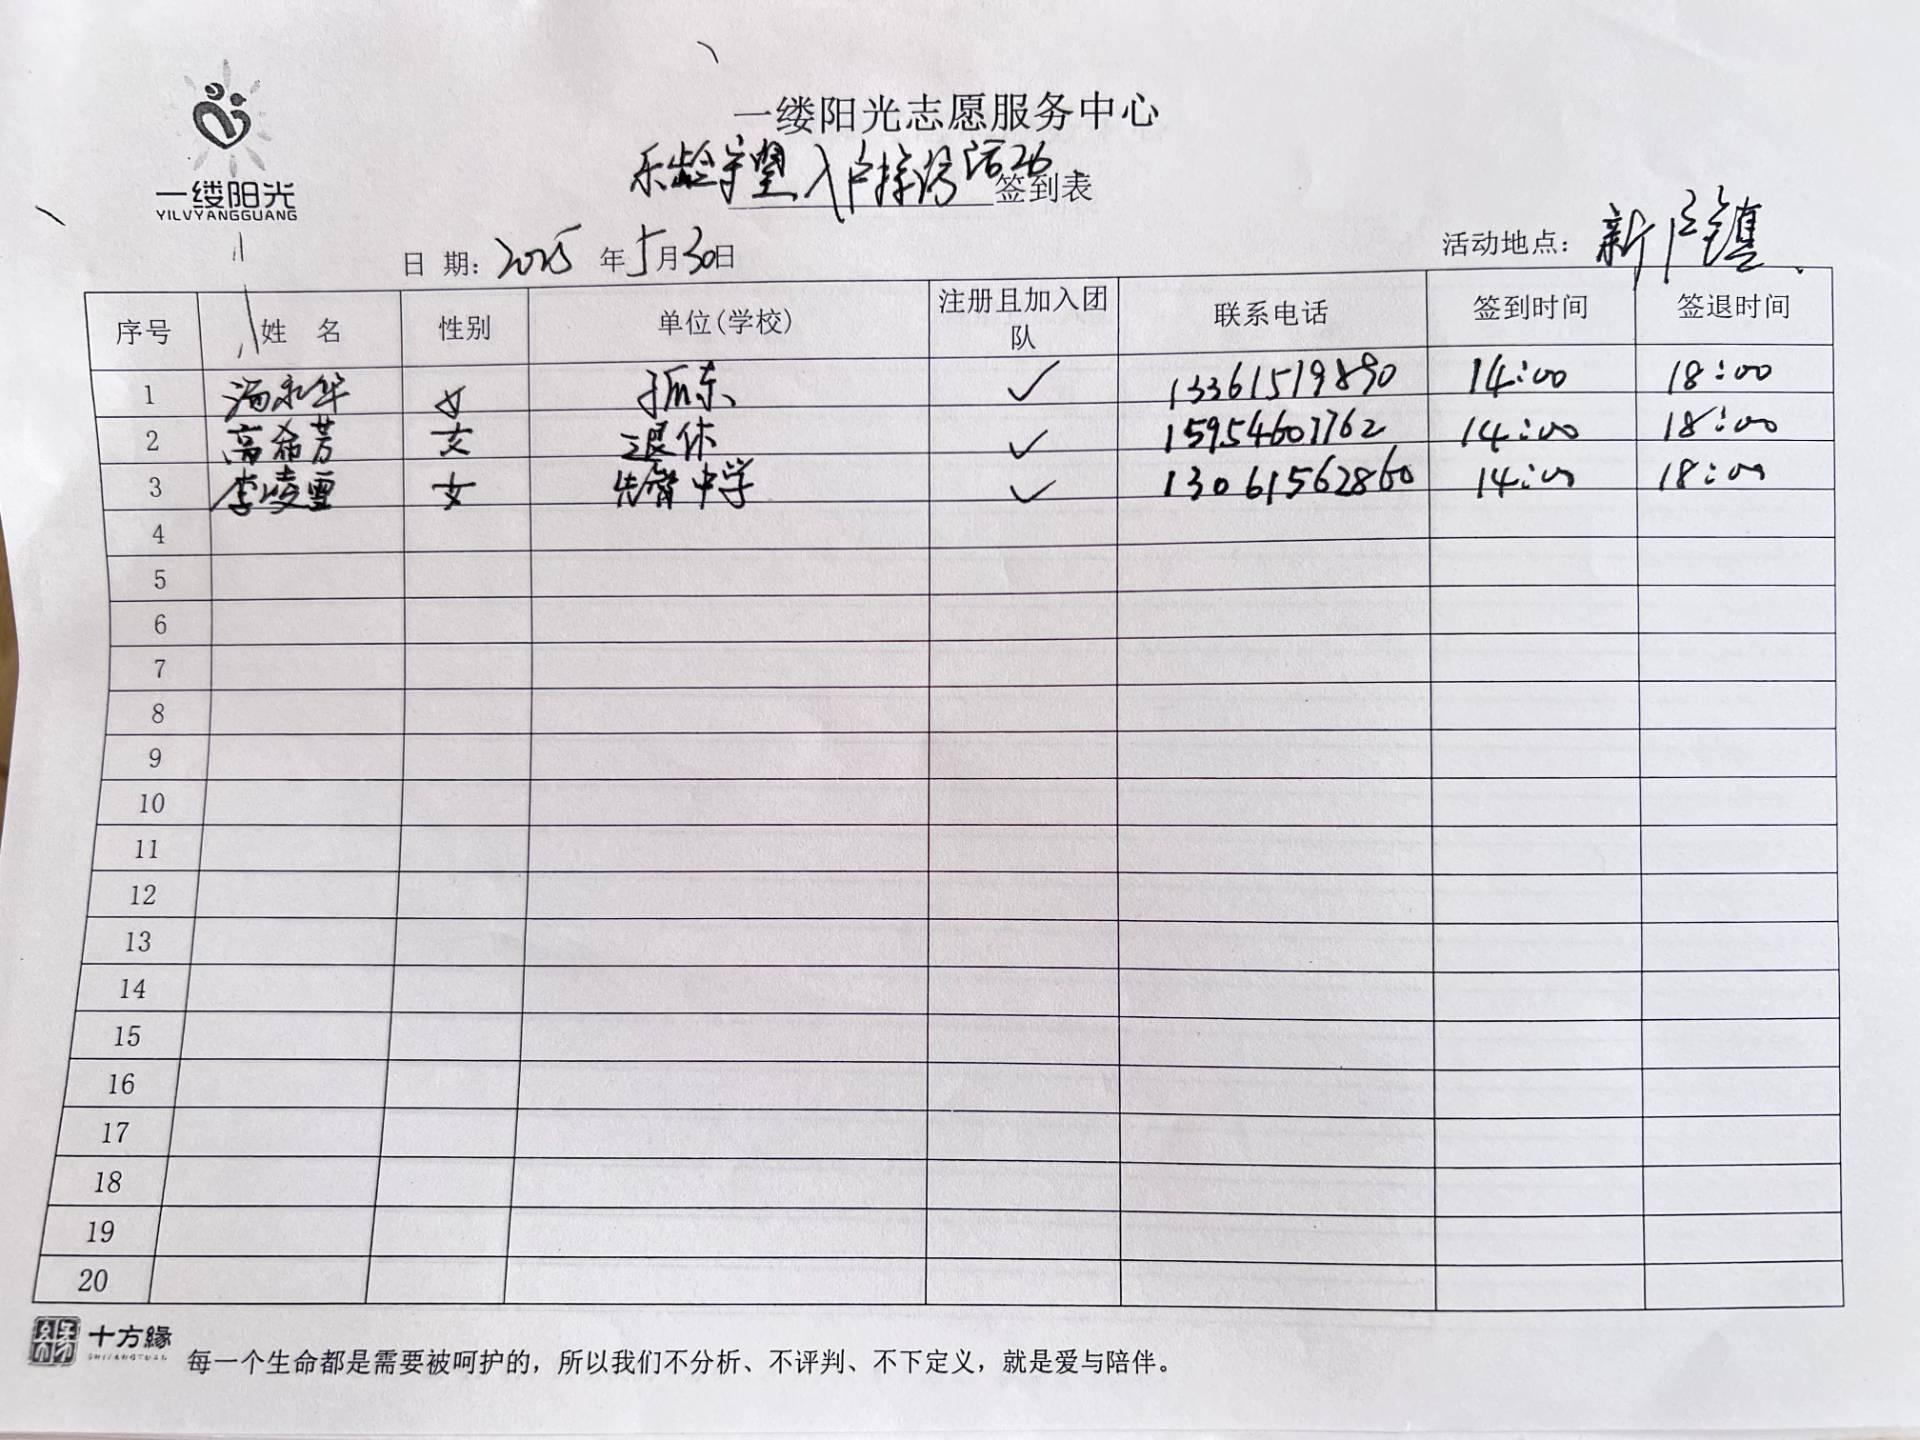 一缕阳光志愿服务中心
乐龄守望入户探访活动 签到表
一缕阳光
YILVYANGGUANG
日 期: 2025 年 5月30日 活动地点: 新户镇
序号 姓 名 性别 单位(学校) 注册且加入团队 联系电话 签到时间 签退时间
1 汤永华 女 孤东 ✓ 13361519890 14:00 18:00
2 高希芳 女 退休 ✓ 15954601762 14:00 18:00
3 李凌雪 女 中学 ✓ 13061562860 14:00 18:00
4
5
6
7
8
9
10
11
12
13
14
15
16
17
18
19
20
十方緣
每一个生命都是需要被呵护的，所以我们不分析、不评判、不下定义，就是爱与陪伴。